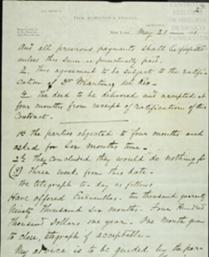 May 21
And all previous payments shall be forfeited
unless this sum is punctually paid.
2. This agreement to be subject to the ratifi-
cation of
4. The deed to be delivered and accepted at
four months from receipt of ratification of this
Contract.
1st The parties objected to four months and
asked for six months time
2d They concluded they would do nothing for
three weeks from this date.
We telegraph to-day as follows
Have offered
thousand six months. Four hundred
thousand dollars, one year. One month
to close, telegraph if acceptable.
My advice is to be guided by the